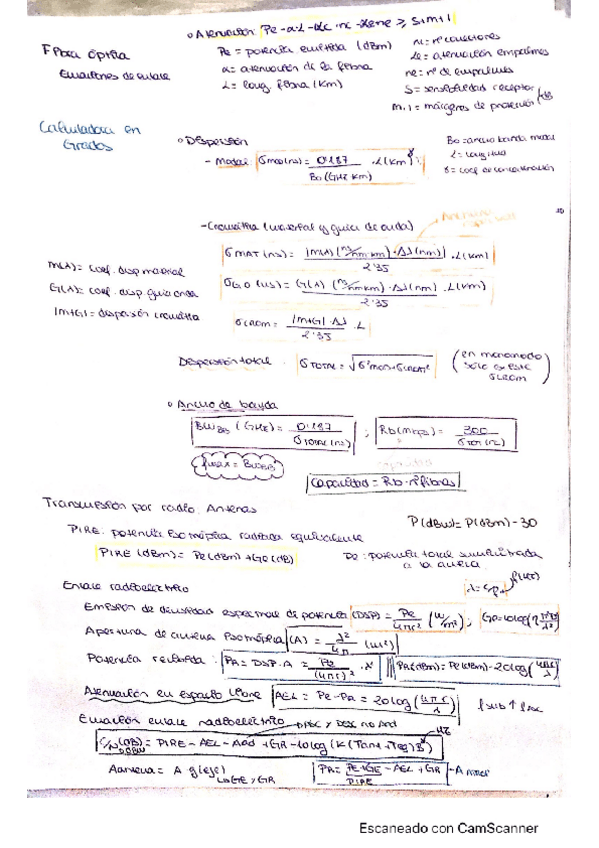 Fibra óptica
Ecuaciones de enlace
o Atenuación Pe-αL-αc·nc-αe·ne ≥ S+M+I
Pe = potencia emitida (dBm)
α = atenuación de la fibra
L = long. fibra (km)
nc = nº conectores
αe = atenuación empalmes
ne = nº de empalmes
S = sensibilidad receptor
M, I = márgenes de protección / dB
Calculadora en
Grados
o Dispersión
- Modal: σmod(ns) = 0'187 / Bo(GHz km) · L(km)^γ
Bo = ancho banda modal
L = longitud
γ = coef de concatenación
- Cromática (material y guía de onda)
Anchura espectral
σMAT (ns) = |M(λ) (ns/nm·km)·Δλ(nm)| / 2'35 · L(km)
M(λ) = coef. disp material
σGO (ns) = G(λ) (ns/nm km)·Δλ(nm) / 2'35 · L(km)
G(λ) = coef. disp guía onda
|M+G| = dispersión cromática
σCROM = |M+G|·Δλ / 2'35 · L
Dispersión total: σTOTAL = √σ²MOD+σCROM²
(en monomodo solo existe σCROM)
o Ancho de banda
BW3dB (GHz) = 0'187 / σTOTAL(ns) ; Rb(Mbps) = 300 / σTOT(ns)
fmax = BW3dB
Capacidad = Rb · nº fibras
Transmisión por radio. Antenas
P(dBW) = P(dBm) - 30
PIRE: potencia isotrópica radiada equivalente
PIRE (dBm) = Pe(dBm)+Ge(dB)
Pe: potencia total suministrada
a la antena
λ = c/f → f(Hz)
Enlace radioeléctrico
Emisión de densidad espectral de potencia (DSP) = Pe / 4πr² (W/m²) ;
Apertura de antena isotrópica (A) = λ² / 4π (m²)
Potencia recibida: PR = DSP·A = Pe / (4πr)² · λ²
PR(dBm) = Pe(dBm) - 20log(4πr/λ)
Atenuación en espacio libre AEL = Pe-PR = 20log(4πr/λ)
Ecuación enlace radioeléctrico
C/N (dB) = PIRE - AEL - Aad + GR - 10log(K(Tant+Teq)B)
Hz
Aantena = A g(eje)
GE y GR
PR = PE+GE - AEL + GR
PIRE
Escaneado con CamScanner